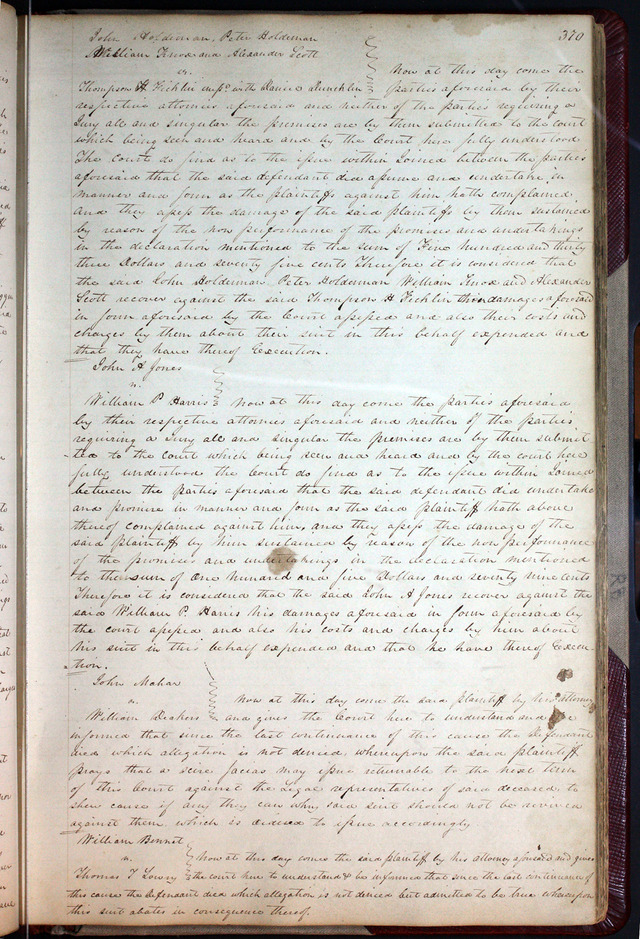 John Holdeman, Peter Holdeman
370
William Knox and Alexander Scott
vs.
Now at this day come the
Thompson H Ficklin
parties aforesaid by their
respective attornies aforesaid and neither of the parties requiring a
Jury all and singular the premises are by them submitted to the court
which being seen and heard and by the Court here fully understood
The Court do find as to the issue within Joined between the parties
aforesaid that the said defendant did assume and undertake in
manner and form as the plaintiffs against him hath complained
and they assess the damage of the said plaintiffs by them sustained
by reason of the non performance of the promises and undertakings
in the declaration mentioned to the sum of Five hundred and thirty
three Dollars and seventy five cents Therefore it is considered that
the said John Holdeman, Peter Holdeman William Knox and Alexander
Scott recover against the said Thompson H Ficklin their damages aforesaid
in form aforesaid by the Court assessed and also their costs and
charges by them about their suit in this behalf expended and
that they have thereof Execution.
John A Jones
vs.
William P. Harris Now at this day come the parties aforesaid
by their respective attornies aforesaid and neither of the parties
requiring a Jury all and singular the premises are by them submit-
ted to the court which being seen and heard and by the court here
fully understood the Court do find as to the issue within Joined
between the Parties aforesaid that the said defendant did undertake
and promise in manner and form as the said plaintiff hath above
thereof complained against him, and they assess the damage of the
said plaintiff by him sustained by reason of the non performance
of the promises and undertakings in the declaration mentioned
to the sum of One hundred and five Dollars and seventy nine cents
Therefore it is considered that the said John A Jones recover against the
said William P. Harris his damages aforesaid in form aforesaid by
the court assessed and also his costs and charges by him about
his suit in this behalf expended and that he have thereof Execu-
tion.
John Mahar
vs.
Now at this day come the said plaintiff by his attorney
William and gives the Court here to understand and be
informed that since the last continuance of this cause the defendant
died which allegation is not denied, whereupon the said plaintiff
prays that a Scire facias may issue returnable to the next term
of this Court against the Legal representatives of said deceased, to
shew cause if any they can why said suit should not be revived
against them, which is ordered to issue accordingly
William Bennet
vs.
Now at this day comes the said plaintiff by his attorney aforesaid and gives
Thomas T Lowry the court here to understand & be informed that since the last continuance of
this cause the Defendant died which allegation is not denied but admitted to be true whereupon
this suit abates in consequence thereof.